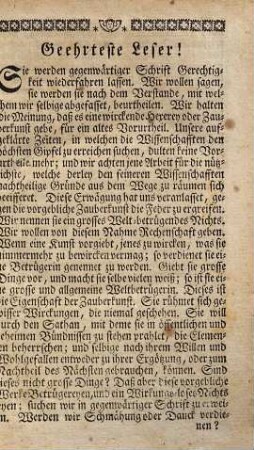 Geehrteste Leser!
Sie werden gegenwärtiger Schrift Gerechtig-
keit wiederfahren lassen. Wir wollen sagen,
sie werden sie nach dem Verstande, mit wel-
chem wir selbige abgefasset, beurtheilen. Wir halten
die Meinung, daß es eine wirckende Hexerey oder Zau-
berkunst gebe, für ein altes Vorurtheil. Unsere auf-
geklärte Zeiten, in welchen die Wissenschafften den
höchsten Gipfel zu erreichen suchen, dulten keine Vor-
urtheile mehr; und wir achten jene Arbeit für die nütz-
lichste, welche derley den feineren Wissenschafften
nachtheilige Gründe aus dem Wege zu räumen sich
beeifferet. Diese Erwägung hat uns veranlasset, ge-
gen die vorgebliche Zauberkunst die Feder zu ergreifen.
Wir nennen sie ein grosses Welt-betrügendes Nichts.
Wir wollen von diesem Nahme Rechenschaft geben.
Wenn eine Kunst vorgiebt, jenes zu wircken, was sie
nimmermehr zu bewircken vermag; so verdienet sie ei-
ne Betrügerin genennet zu werden. Giebt sie grosse
Dinge vor, und macht sie selbe vielen weiß; so ist sie ei-
ne grosse und allgemeine Weltbetrügerin. Dieses ist
die Eigenschaft der Zauberkunst. Sie rühmet sich ge-
wisser Wirkungen, die niemal geschehen. Sie will
durch den Sathan, mit deme sie in öffentlichen und
geheimen Bündnissen zu stehen prahlet, die Elemen-
ten beherrschen; und selbige nach ihrem Willen und
Wohlgefallen entweder zu ihrer Ergötzung, oder zum
Nachtheil des Nächsten gebrauchen, können. Sind
dieses nicht grosse Dinge? Daß aber diese vorgebliche
Wercke Betrügereyen, und ein Wirkung-loses Nichts
seyen; suchen wir in gegenwärtiger Schrift zu erwei-
sen. Werden wir Schmähung oder Danck verdie-
nen?